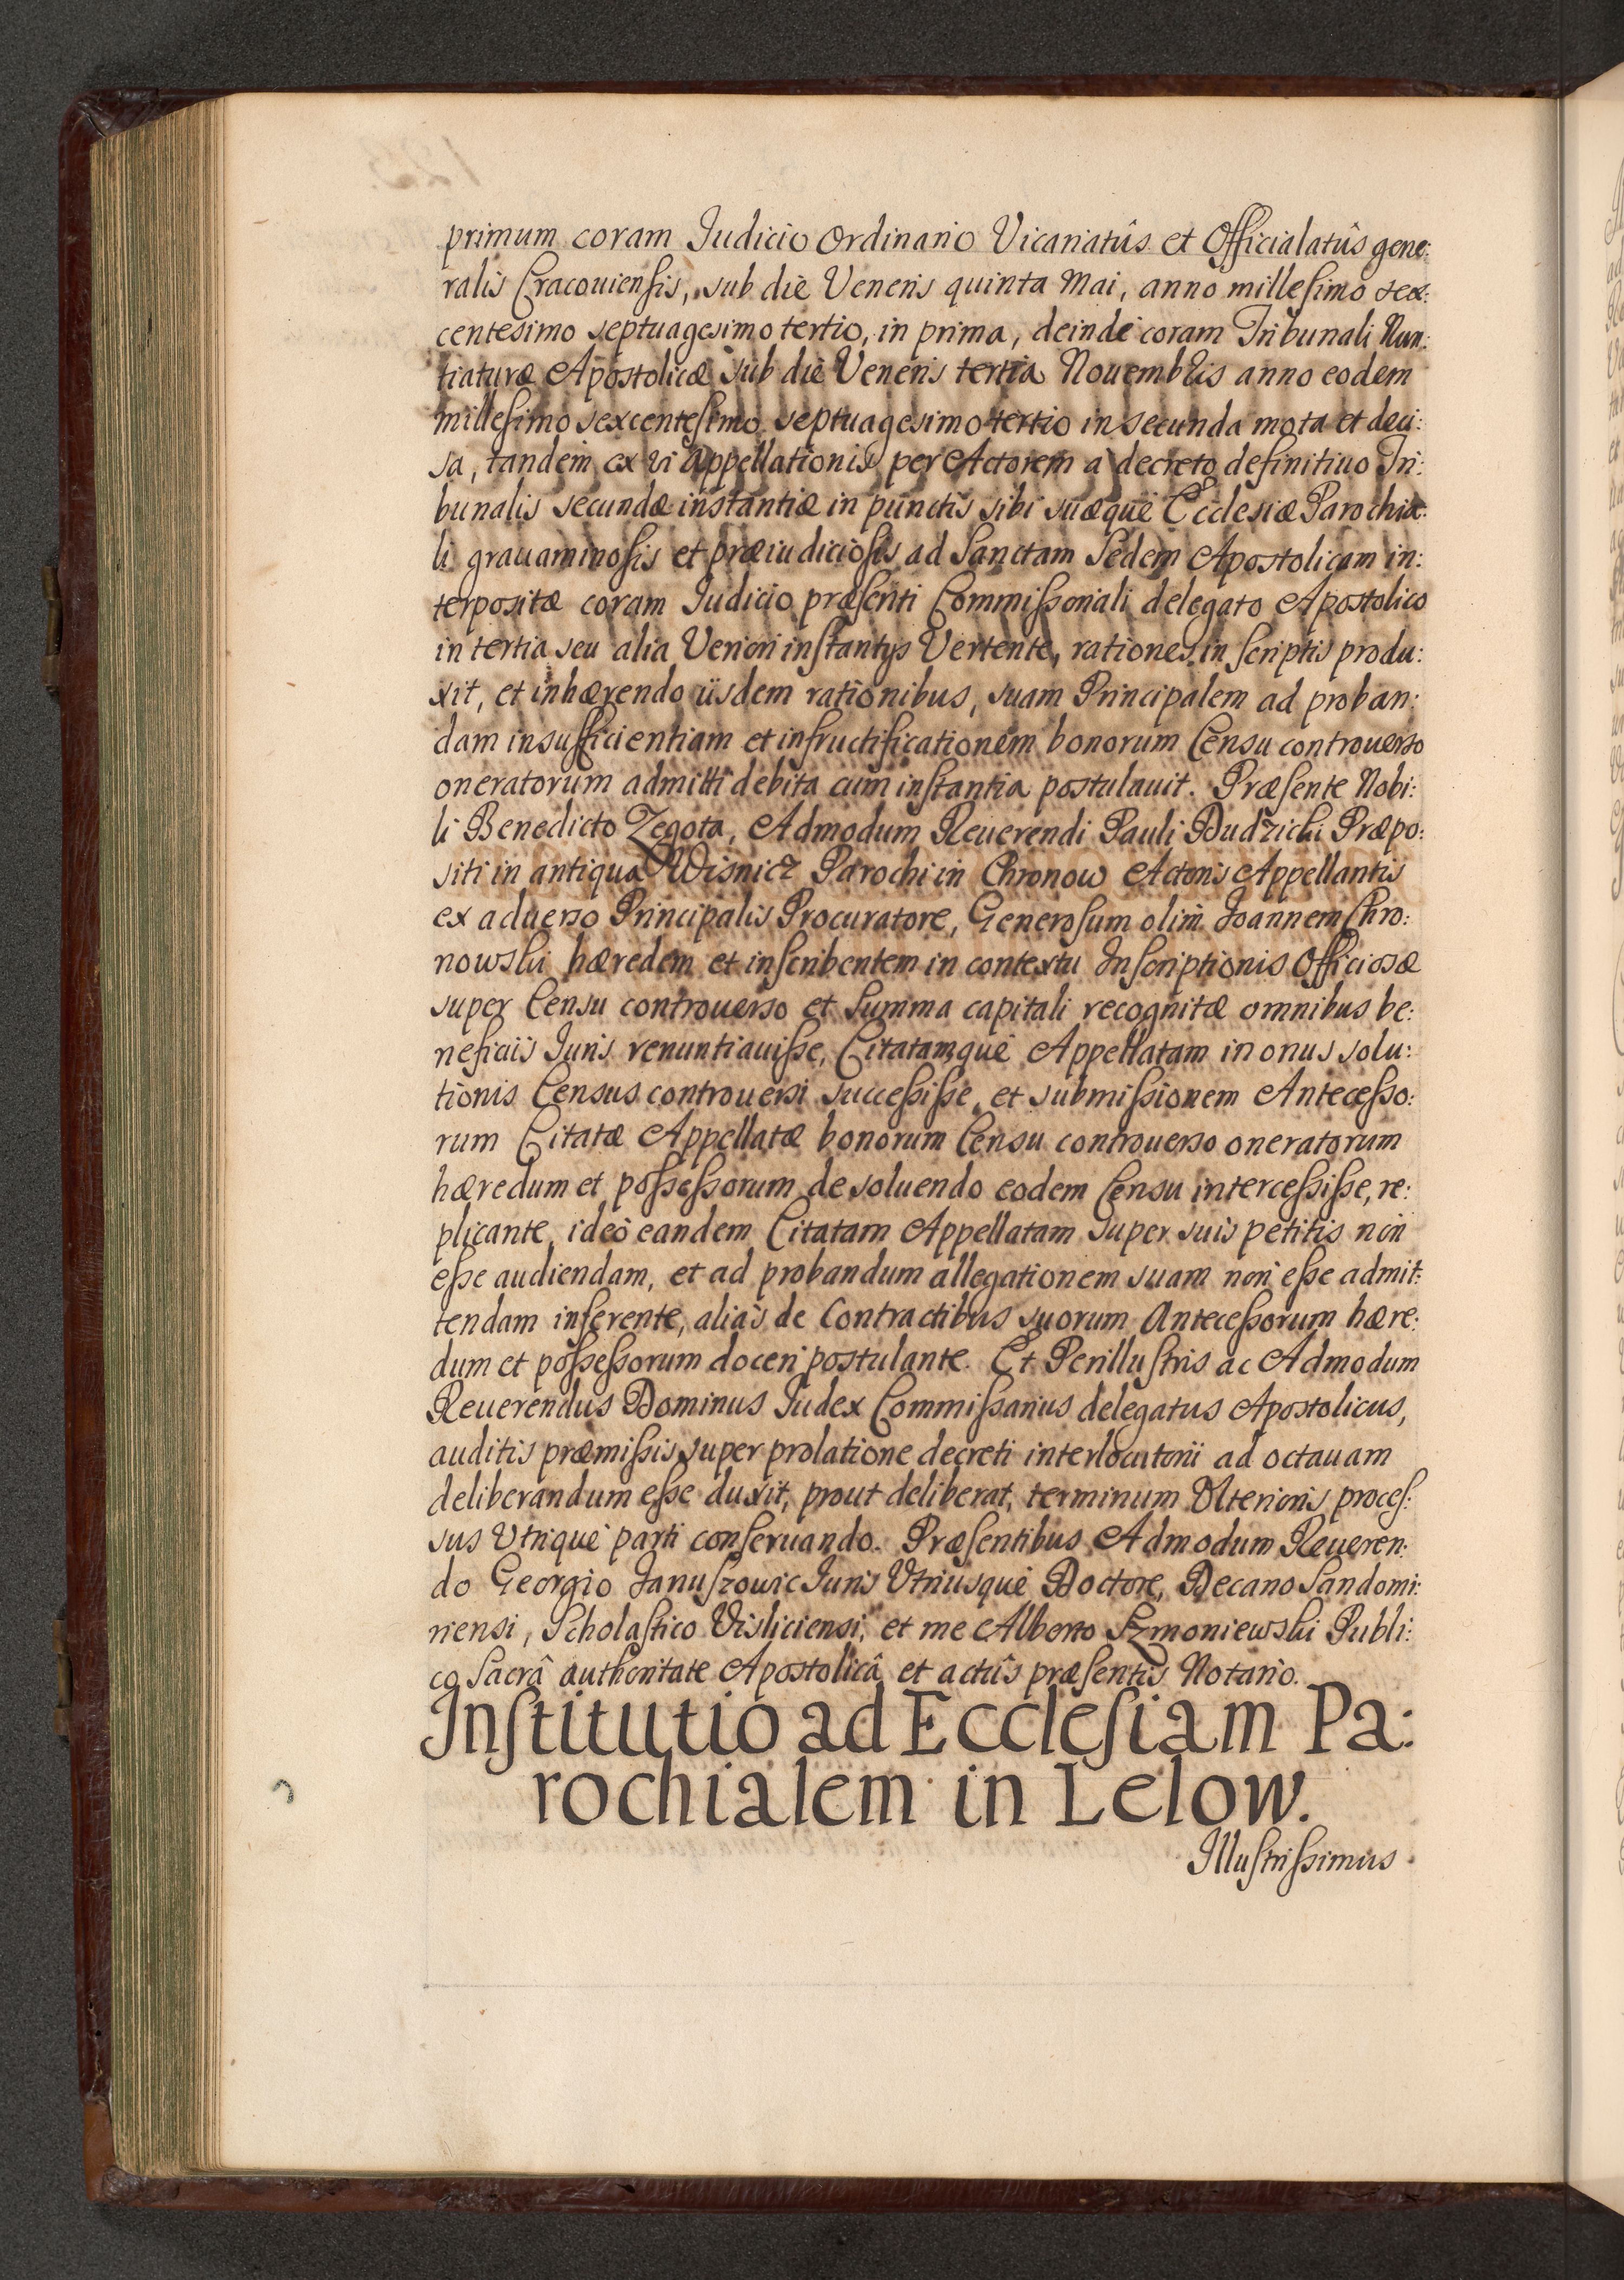 primum coram Iudicio Ordinario Vicariatûs et Officialatûs gene:
ralis Cracouiensis, sub die Veneris quinta Mai, anno millesimo sex:
centesimo septuagesimo tertio, in prima, deindè coram Tribunali Nun:
tiaturæ Apostolicæ sub die Veneris tertia Nouembris anno eodem
millesimo sexcentesimo septuagesimo tertio in secunda mota et deci:
sa, tandem ex vi Appellationis per Actorem à decreto definitiuo Tri:
bunalis secundæ instantiæ in punctis sibi suæquè Ecclesiæ Parochia:
li grauaminosis et præiudiciosis ad Sanctam Sedem Apostolicam in:
terpositæ coram Iudicio præsenti Commissoriali delegato Apostolico
in tertia seu alia Veriori instantys Vertente, rationes in scriptis produ:
xit, et inhærendo iisdem rationibus, suam Principalem ad proban:
dam insufficientiam et infructificationem bonorum Censu controuerso
oneratorum admitti debita cum instantia postulauit. Præsente Nobi:
li Benedicto Zegota, Admodum Reuerendi Pauli Dudzicki Præpo:
siti in antiqua Wisnicz Parochi in Chronow Actoris Appellantis
ex aduerso Principalis Procuratore, Generosum olim Joannem Chro:
nowski hæredem et inscribentem in contextu Inscriptionis Officiosæ
super Censu controuerso et Summa capitali recognitæ omnibus be:
neficiis Iuris renuntiauisse, Citatamquè Appellatam in onus solu:
tionis Census controuersi successisse, et submissionem Antecesso:
rum Citatæ Appellatæ bonorum Censu controuerso oneratorum
hæredum et possessorum de soluendo eodem Censu intercessisse, re:
plicante, ideò eandem Citatam Appellatam super suis petitis non
esse audiendam, et ad probandum allegationem suam non esse admit:
tendam inferente, aliàs de Contractibus suorum Antecessorum hære:
dum et possessorum doceri postulante. Et Perillustris ac Admodum
Reuerendus Dominus Iudex Commissarius delegatus Apostolicus,
auditis præmissis super prolatione decreti interlocutorii ad octauam
deliberandum esse duxit, prout deliberat, terminum Vlterioris proces:
sus Vtriquè parti conseruando. Præsentibus Admodum Reueren:
do Georgio Januszowic Iuris Vtriusquè Doctore, Decano Sandomi:
riensi, Scholastico Visliciensi, et me Alberto Szmoniewski Publi:
co Sacrâ authoritate Apostolicâ et actûs præsentis Notario.
Institutio ad Ecclesiam Pa:
rochialem in Lelow.
Illustrissimus